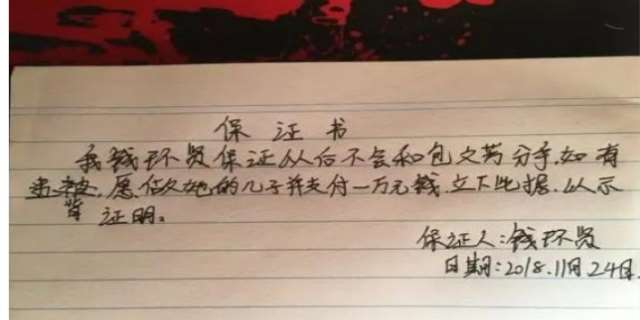 保 证 书
我钱环贤保证从后不会和包文芮分手,如有
违背,愿做她的儿子并支付一万元钱,立下此据,以示
证明。
保证人:钱环贤
日期:2018.11月24日.